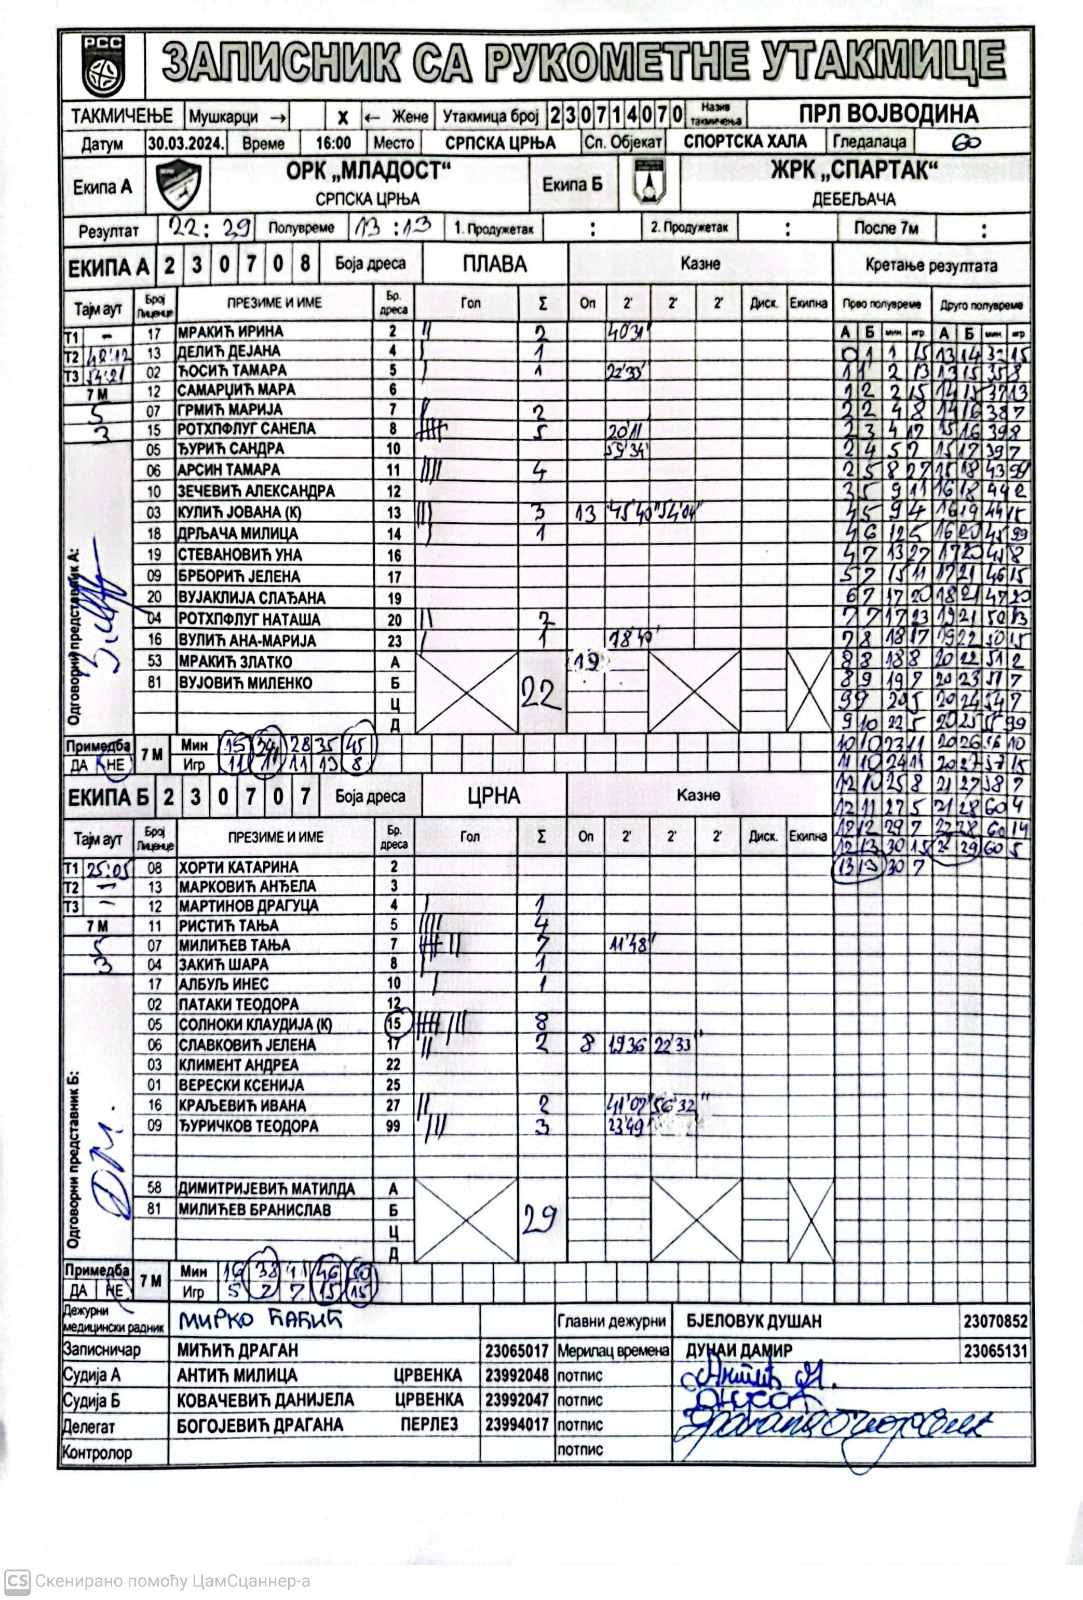 РСС
ЗАПИСНИК СА РУКОМЕТНЕ УТАКМИЦЕ
ТАКМИЧЕЊЕ Мушкарци → X ← Жене Утакмица број 230714070 Назив такмичења ПРЛ ВОЈВОДИНА
Датум 30.03.2024. Време 16:00 Место СРПСКА ЦРЊА Сп. Објекат СПОРТСКА ХАЛА Гледалаца 60
Екипа А ОРК „МЛАДОСТ“ Екипа Б ЖРК „СПАРТАК“
СРПСКА ЦРЊА ДЕБЕЉАЧА
Резултат 22:29 Полувреме 13:13 1. Продужетак : 2. Продужетак : После 7м :
ЕКИПА А 230708 Боја дреса ПЛАВА Казне Кретање резултата
Тајм аут Број Лиценце ПРЕЗИМЕ И ИМЕ Бр. дреса Гол Σ Оп 2' 2' 2' Диск. Екипна Прво полувреме Друго полувреме
А Б мин игр А Б мин игр
Т1 - 17 МРАКИЋ ИРИНА 2 || 2 40'31"
Т2 48'12 13 ДЕЛИЋ ДЕЈАНА 4 | 1
Т3 54:21 02 ЋОСИЋ ТАМАРА 5 | 1 22'33"
7 М 12 САМАРЏИЋ МАРА 6
5 07 ГРМИЋ МАРИЈА 7 || 2
3 15 РОТХПФЛУГ САНЕЛА 8 5 20'11
05 ЂУРИЋ САНДРА 10 59'34"
06 АРСИН ТАМАРА 11 |||| 4
10 ЗЕЧЕВИЋ АЛЕКСАНДРА 12
03 КУЛИЋ ЈОВАНА (К) 13 ||| 3 13 45'40" 54'04"
18 ДРЉАЧА МИЛИЦА 14 | 1
19 СТЕВАНОВИЋ УНА 16
09 БРБОРИЋ ЈЕЛЕНА 17
20 ВУЈАКЛИЈА СЛАЂАНА 19
04 РОТХПФЛУГ НАТАША 20 || 2
16 ВУЛИЋ АНА-МАРИЈА 23 1 18'40"
53 МРАКИЋ ЗЛАТКО А 19
81 ВУЈОВИЋ МИЛЕНКО Б 22
Ц
Д
Одговорни представник А:
Примедба ДА НЕ 7 М Мин 15 24 28 35 45
Игр 11 11 11 13 8
0 1 1 15 13 14 32 15
1 1 2 13 13 15 35 8
1 2 2 15 14 15 37 13
2 2 4 8 14 16 38 7
2 3 4 17 15 16 39 8
2 4 5 7 15 17 39 7
2 5 8 27 15 18 43 99
3 5 9 11 16 18 44 2
4 5 9 4 16 19 44 15
4 6 12 5 16 20 45 99
4 7 13 27 17 20 45 8
5 7 15 11 17 21 46 15
6 7 17 20 18 21 47 20
7 7 17 23 19 21 50 13
7 8 18 17 19 22 50 15
8 8 18 8 20 22 51 2
8 9 19 7 20 23 51 7
9 9 20 5 20 24 54 7
9 10 22 5 20 25 55 99
10 10 23 11 20 26 56 10
11 10 24 11 20 27 57 15
12 10 25 8 21 27 58 7
12 11 27 5 21 28 60 4
12 12 29 7 22 28 60 14
12 13 30 15 22 29 60 5
13 13 30 7
ЕКИПА Б 230707 Боја дреса ЦРНА Казне
Тајм аут Број Лиценце ПРЕЗИМЕ И ИМЕ Бр. дреса Гол Σ Оп 2' 2' 2' Диск. Екипна
Т1 25:05 08 ХОРТИ КАТАРИНА 2
Т2 - 13 МАРКОВИЋ АНЂЕЛА 3
Т3 - 12 МАРТИНОВ ДРАГУЦА 4 | 1
7 М 11 РИСТИЋ ТАЊА 5 |||| 4
5 07 МИЛИЋЕВ ТАЊА 7 7 11'48"
3 04 ЗАКИЋ ШАРА 8 | 1
17 АЛБУЉ ИНЕС 10 | 1
02 ПАТАКИ ТЕОДОРА 12
05 СОЛНОКИ КЛАУДИЈА (К) 15 8
06 СЛАВКОВИЋ ЈЕЛЕНА 17 || 2 8 19'36 22'33"
03 КЛИМЕНТ АНДРЕА 22
01 ВЕРЕСКИ КСЕНИЈА 25
16 КРАЉЕВИЋ ИВАНА 27 || 2 41'02" 56'32"
09 ЂУРИЧКОВ ТЕОДОРА 99 ||| 3 23'49"
58 ДИМИТРИЈЕВИЋ МАТИЛДА А
81 МИЛИЋЕВ БРАНИСЛАВ Б 29
Ц
Д
Одговорни представник Б:
Примедба ДА НЕ 7 М Мин 16 38 41 46 50
Игр 5 2 7 15 15
Дежурни медицински радник МИРКО ЋАЋИЋ Главни дежурни БЈЕЛОВУК ДУШАН 23070852
Записничар МИЋИЋ ДРАГАН 23065017 Мерилац времена ДУНАИ ДАМИР 23065131
Судија А АНТИЋ МИЛИЦА ЦРВЕНКА 23992048 потпис Антић М.
Судија Б КОВАЧЕВИЋ ДАНИЈЕЛА ЦРВЕНКА 23992047 потпис
Делегат БОГОЈЕВИЋ ДРАГАНА ПЕРЛЕЗ 23994017 потпис
Контролор потпис
CS Скенирано помоћу ЦамСцаннер-а